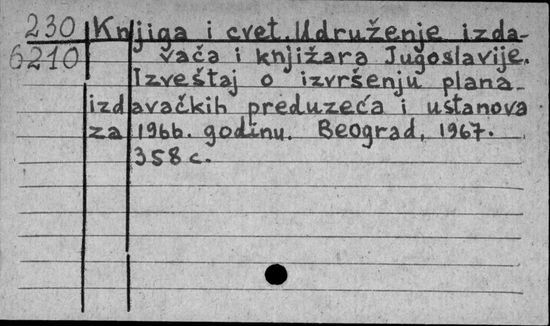 230 Knjiga i cvet. Udruženje izda-
6210 vača i knjižara Jugoslavije.
Izveštaj o izvršenju plana
izdavačkih preduzeća i ustanova
za 1966. godinu. Beograd, 1967.
358 c.